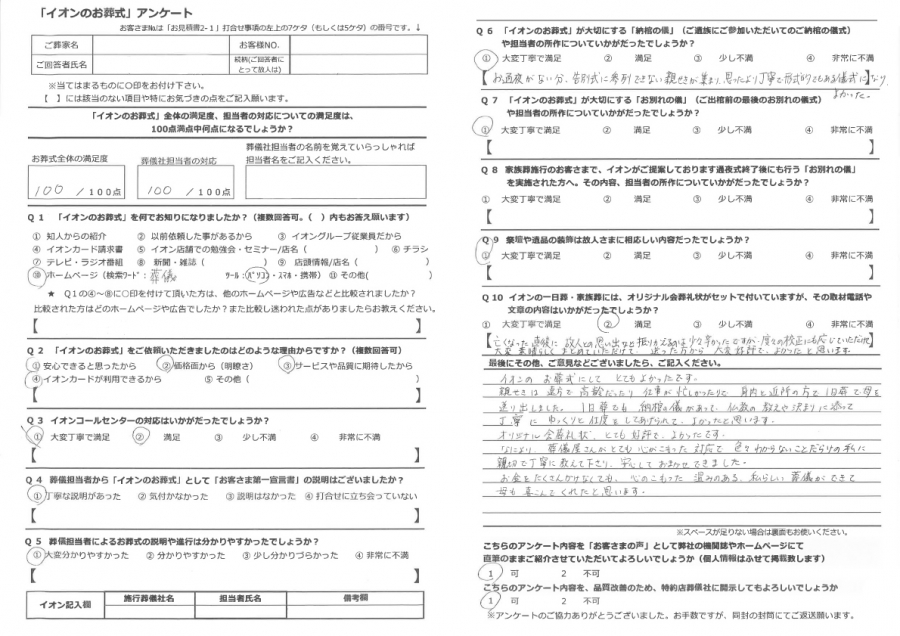 「イオンのお葬式」アンケート
お客さまNo.は「お見積書2-1」打合せ事項の左上の7ケタ（もしくは5ケタ）の番号です。↓
ご葬家名 お客様NO.
ご回答者氏名 続柄(ご回答者にとって故人は)
※当てはまるものに○印をお付け下さい。
【　】には該当のない項目や特にお気づきの点をご記入願います。
「イオンのお葬式」全体の満足度、担当者の対応についての満足度は、
100点満点中何点になるでしょうか？
葬儀社担当者の名前を覚えていらっしゃれば
お葬式全体の満足度 葬儀社担当者の対応 担当者名をご記入ください。
100 / 100点 100 / 100点
Q 1 「イオンのお葬式」を何でお知りになりましたか？（複数回答可。（　）内もお答え願います）
① 知人からの紹介 ② 以前依頼した事があるから ③ イオングループ従業員だから
④ イオンカード請求書 ⑤ イオン店舗での勉強会・セミナー/店名（　） ⑥ チラシ
⑦ テレビ・ラジオ番組 ⑧ 新聞・雑誌（　） ⑨ 店頭情報/店名（　）
⑩ ホームページ（検索ワード：葬儀 ツール：パソコン・スマホ・携帯） ⑪ その他(　)
★ Q１の④～⑧に○印を付けて頂いた方は、他のホームページや広告などと比較されましたか？
比較された方はどのホームページや広告でしたか？また比較し迷われた点がありましたらお教えください。
【　】
Q 2 「イオンのお葬式」をご依頼いただきましたのはどのような理由からですか？（複数回答可）
① 安心できると思ったから ② 価格面から（明瞭さ） ③ サービスや品質に期待したから
④ イオンカードが利用できるから ⑤ その他（　）
【　】
Q 3 イオンコールセンターの対応はいかがだったでしょうか？
① 大変丁寧で満足 ② 満足 ③ 少し不満 ④ 非常に不満
【　】
Q 4 葬儀担当者から「イオンのお葬式」として「お客さま第一宣言書」の説明はございましたか？
① 丁寧な説明があった ② 気付かなかった ③ 説明はなかった ④ 打合せに立ち会っていない
【　】
Q 5 葬儀担当者によるお葬式の説明や進行は分かりやすかったでしょうか？
① 大変分かりやすかった ② 分かりやすかった ③ 少し分かりづらかった ④ 非常に不満
【　】
イオン記入欄 施行葬儀社名 担当者氏名 備考欄
Q 6 「イオンのお葬式」が大切にする「納棺の儀」（ご遺族にご参加いただいてのご納棺の儀式）
や担当者の所作についていかがだったでしょうか？
① 大変丁寧で満足 ② 満足 ③ 少し不満 ④ 非常に不満
【お通夜がない分、告別式に参列できない親せきが集まり、思ったより丁寧で形式的でもある儀式になり
よかった。
Q 7 「イオンのお葬式」が大切にする「お別れの儀」（ご出棺前の最後のお別れの儀式）
や担当者の所作についていかがだったでしょうか？
① 大変丁寧で満足 ② 満足 ③ 少し不満 ④ 非常に不満
【　】
Q 8 家族葬施行のお客さまで、イオンがご提案しております通夜式終了後にも行う「お別れの儀」
を実施された方へ。その内容、担当者の所作についていかがだったでしょうか？
① 大変丁寧で満足 ② 満足 ③ 少し不満 ④ 非常に不満
【　】
Q 9 祭壇や遺品の装飾は故人さまに相応しい内容だったでしょうか？
① 大変丁寧で満足 ② 満足 ③ 少し不満 ④ 非常に不満
【　】
Q 10 イオンの一日葬・家族葬には、オリジナル会葬礼状がセットで付いていますが、その取材電話や
文章の内容はいかがだったでしょうか？
① 大変丁寧で満足 ② 満足 ③ 少し不満 ④ 非常に不満
【亡くなった直後に故人との思い出など振りかえるのは少々辛かったですが、度々の校正にも応じていただけて
大変素晴らしくまとめていただけて、送った方から大変好評で、よかったと思います。
最後にその他、ご意見などございましたら、ご記入ください。
イオンのお葬式にしてとてもよかったです。
親せきは遠方で高齢だったり仕事が忙しかったりで身内と近所の方で1日葬で母を
送り出しました。1日葬でも納棺の儀があって、仏教の教えや決まりに添って
丁寧にゆっくりと仕度をしてあげられて、よかったと思います。
オリジナル会葬礼状、とても好評で、よかったです。
なにより、葬儀屋さんがとても心のこもった対応で色々わからないことだらけの私に
親切で丁寧に教えて下さり、安心しておまかせできました。
お金をたくさんかけなくても、心のこもった温みのある、私らしい葬儀ができて
母も喜こんでくれたと思います。
※スペースが足りない場合は裏面もお使いください。
こちらのアンケート内容を「お客さまの声」として弊社の機関誌やホームページにて
直筆のままご紹介させていただいてよろしいでしょうか（個人情報はふせて掲載致します）
1 可 2 不可
こちらのアンケート内容を、品質改善のため、特約店葬儀社に開示してもよろしいでしょうか
1 可 2 不可
※アンケートのご協力ありがとうございました。お手数ですが、同封の封筒にてご返送願います。